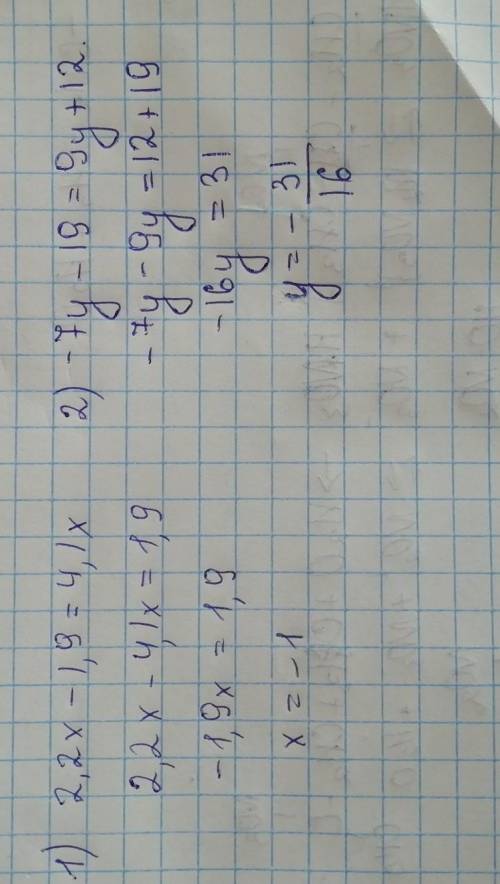 1) 2,2x - 1,9 = 4,1x
2,2x - 4,1x = 1,9
-1,9x = 1,9
x = -1
2) -7y - 19 = 9y + 12.
-7y - 9y = 12 + 19
-16y = 31
y = - 31/16